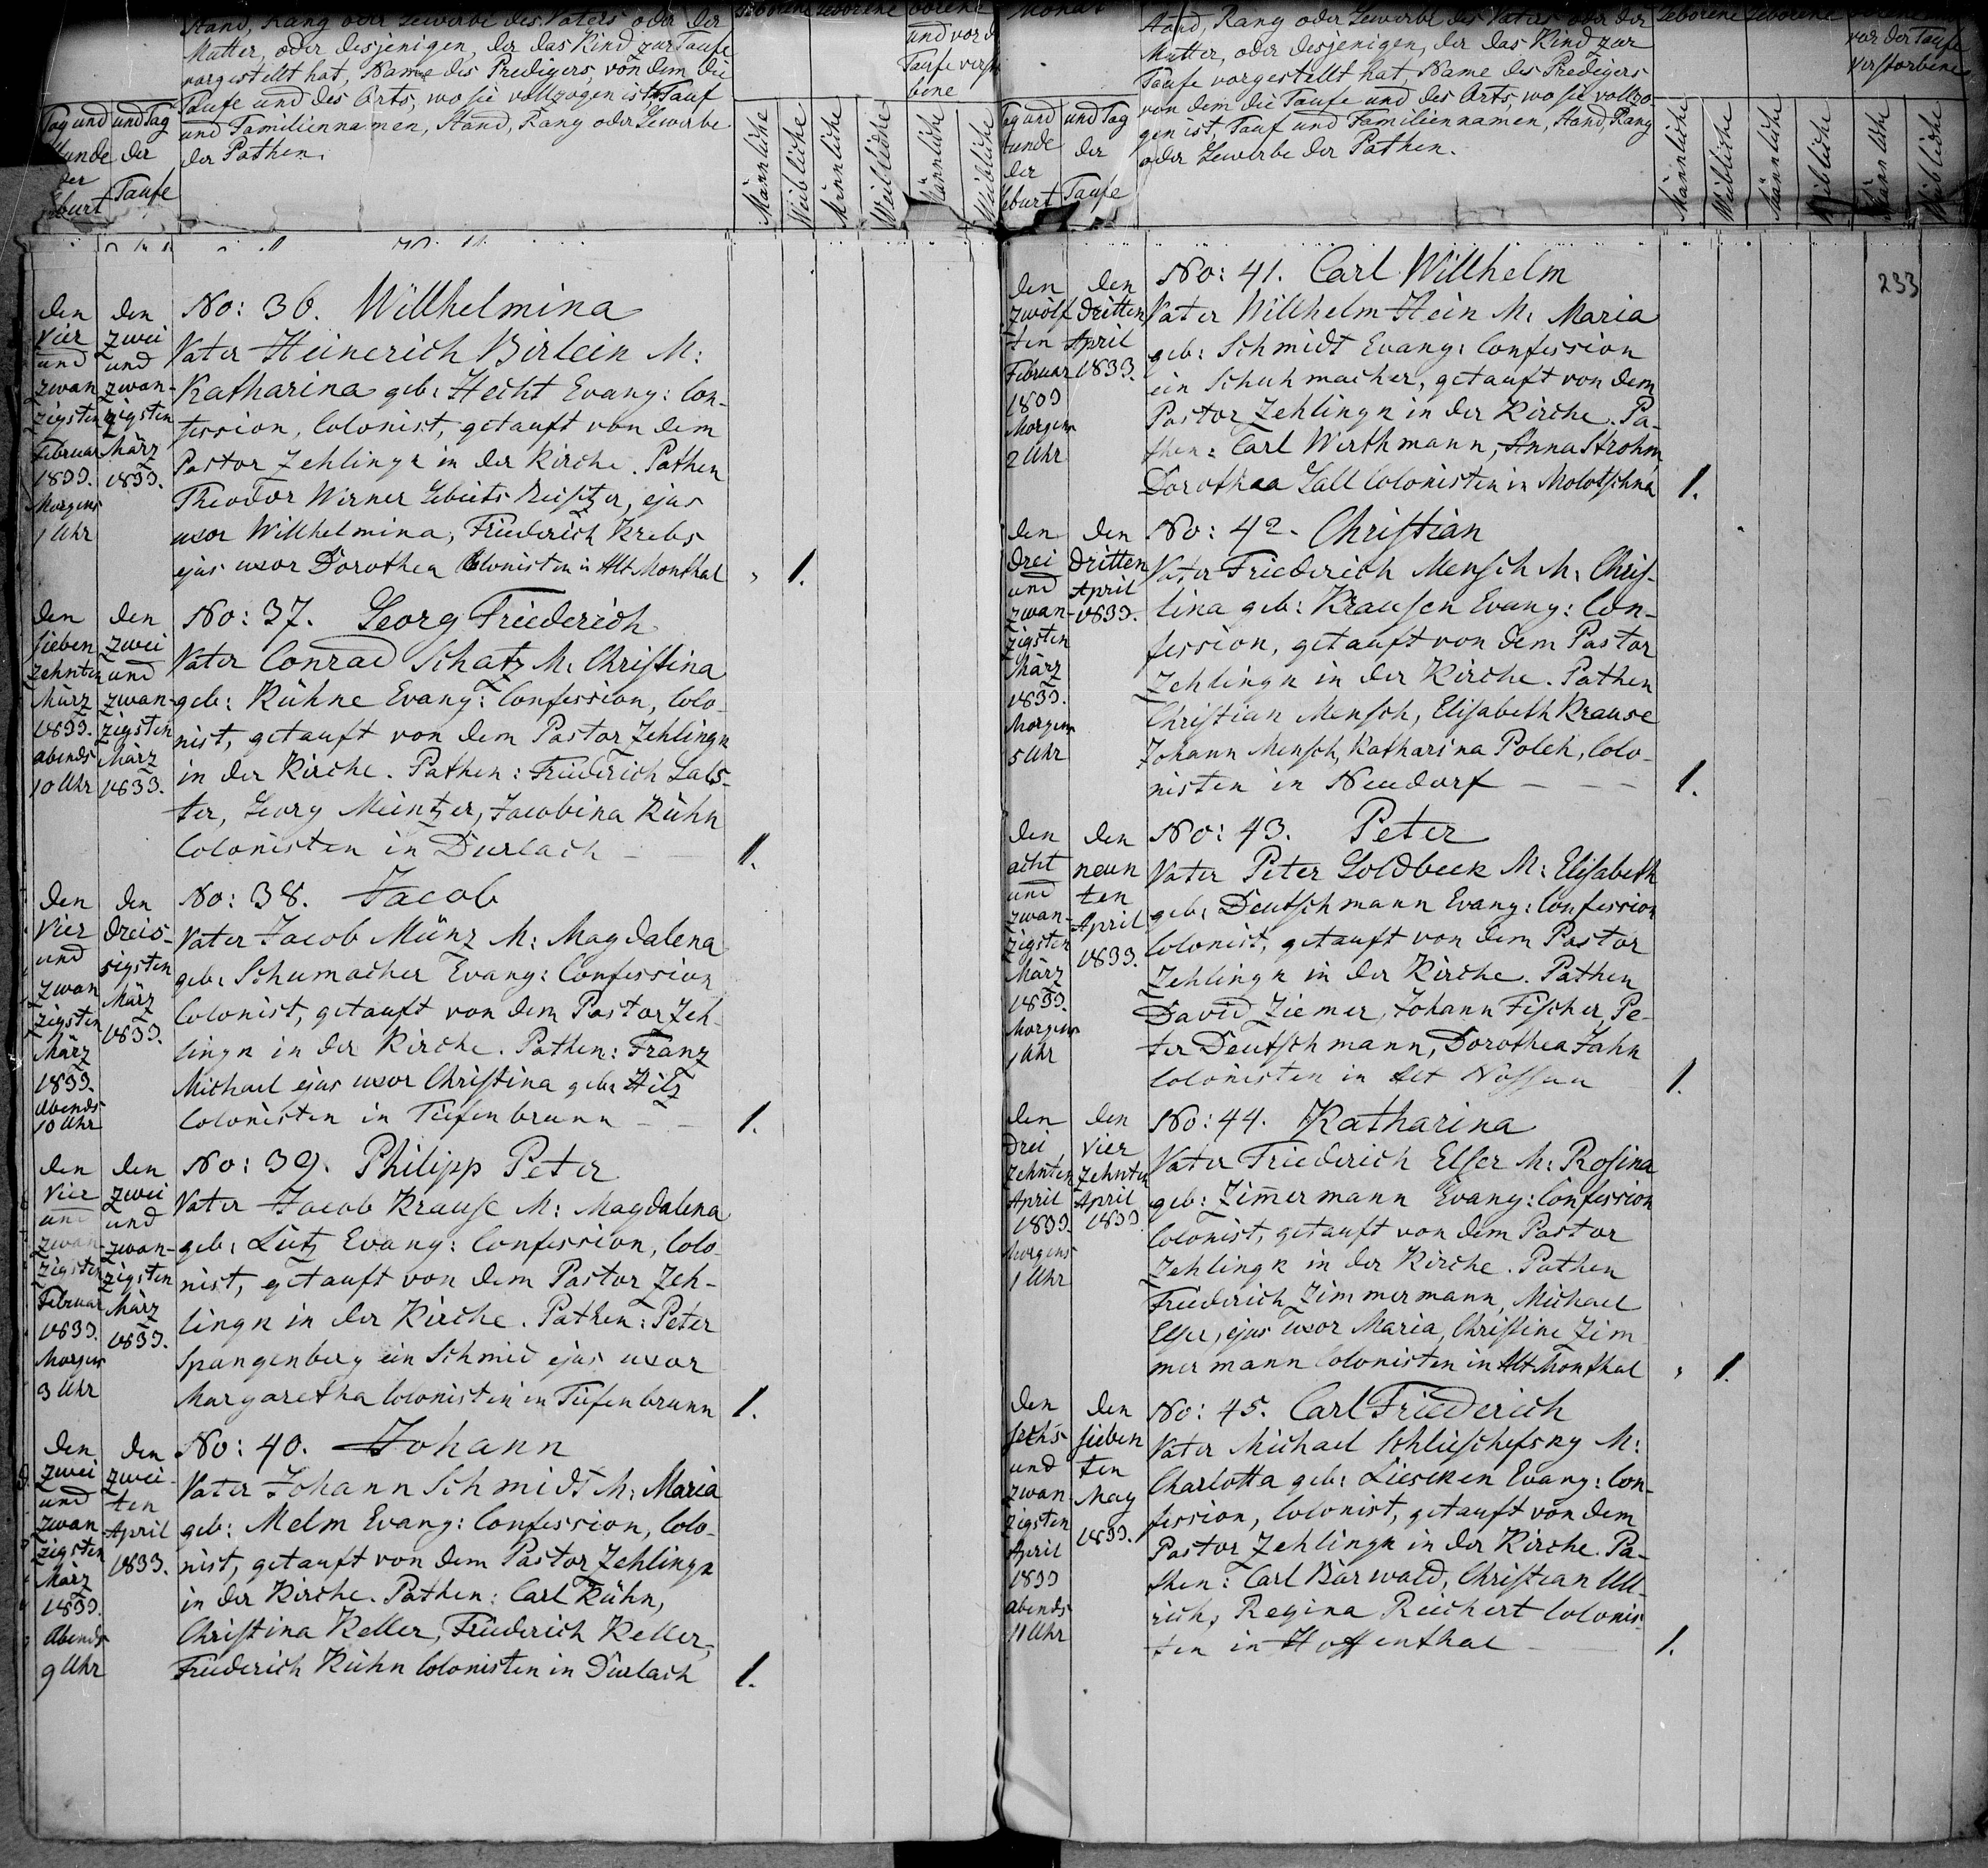 Stand, Rang oder Gewerbe des Vaters oder der
Mutter, oder desjenigen, der das Kind zur Taufe
vorgestellt hat, Name des Predigers, von dem die
Taufe und des Orts, wo sie vollzogen ist, Tauf
und Familiennamen, Stand, Rang oder Gewerbe
der Pathen.
Tag und
Stunde
der
Geburt
und Tag
der
Taufe
und vor d
Taufe verst
bene
Männliche
Weibliche
Männliche
Weibliche
Männliche
Weibliche
den
Vier
und
zwan
zigsten
Februar
1833.
Morgens
1 Uhr
den
zwei
und
zwan-
zigsten
März
1833.
No: 36. Willhelmina
Vater Heinerich Birlein M:
Katharina geb: Hecht Evang: Con-
fession, Colonist, getauft von dem
Pastor Zehlingk in der Kirche. Pathen
Theodor Werner Gebiets Beisitzer, ejus
uxor Willhelmina, Friederich Krebs
ejus uxor Dorothea Colonisten in Alt Monthal
1.
den
sieben
zehnten
März
1833.
abends
10 Uhr
den
zwei
und
zwan-
zigsten
März
1833.
No: 37. Georg Friederich
Vater Conrad Schatz M: Christina
geb: Kühne Evang: Confession, Colo-
nist, getauft von dem Pastor Zehlingk
in der Kirche. Pathen: Friederich Lals-
ter, Georg Meintzer, Jacobina Kühn
Colonisten in Durlach
1.
den
Vier
und
zwan
zigsten
März
1833.
Abends
10 Uhr
den
dreis-
sigsten
März
1833.
No: 38. Jacob
Vater Jacob Münz M: Magdalena
geb: Schumacher Evang: Confession
Colonist, getauft von dem Pastor Zeh-
lingk in der Kirche. Pathen: Franz
Michael ejus uxor Christina geb: Hilz
Colonisten in Tiefenbrunn
1.
den
Vier
und
zwan-
zigsten
Februar
1833.
Morgens
3 Uhr
den
zwei
und
zwan-
zigsten
März
1833.
No: 39. Philipp Peter
Vater Jacob Krause M: Magdalena
geb: Lutz Evang: Confession, Colo-
nist, getauft von dem Pastor Zeh-
lingk in der Kirche. Pathen: Peter
Spangenberg ein Schmid ejus uxor
Margaretha Colonisten in Tiefenbrunn
1.
den
zwei
und
zwan
zigsten
März
1833.
Abends
9 Uhr
den
zwei-
ten
April
1833.
No: 40. Johann
Vater Johann Schmidt M: Maria
geb: Melm Evang: Confession, Colo-
nist, getauft von dem Pastor Zehlingk
in der Kirche. Pathen: Carl Kühn,
Christina Keller, Friederich Keller,
Friederich Kühn Colonisten in Durlach
1.
Monat
Stand, Rang oder Gewerbe des Vaters oder der
Mutter, oder desjenigen, der das Kind zur
Taufe vorgestellt hat, Name des Predigers
von dem die Taufe und des Orts, wo sie vollzo-
gen ist, Tauf und Familiennamen, Stand, Rang
oder Gewerbe der Pathen.
Geborene
Geborene
vor der Taufe
Verstorbene
Tag und
tunde
der
Geburt
und Tag
der
Taufe
Männliche
Weibliche
Männliche
Weibliche
Männliche
Weibliche
233
den
zwölf
ten
Februar
1833
Morgens
2 Uhr
den
dritten
April
1833.
No: 41. Carl Willhelm
Vater Willhelm Hein M: Maria
geb: Schmidt Evang: Confession
ein Schuhmacher, getauft von dem
Pastor Zehlingk in der Kirche. Pa-
then: Carl Wirthmann, Anna Strohm,
Dorothea Gall Colonisten in Molotschna
1.
den
drei
und
zwan-
zigsten
März
1833.
Morgens
5 Uhr
den
dritten
April
1833.
No: 42. Christian
Vater Friederich Mensch M: Chris-
tina geb: Krausen Evang: Con-
fession, getauft von dem Pastor
Zehlingk in der Kirche. Pathen
Christian Mensch, Elisabeth Krause
Johann Mensch, Katharina Poleh, Colo-
nisten in Neudorf
1.
den
acht
und
zwan-
zigsten
März
1833.
Morgens
1 Uhr
den
neun
ten
April
1833.
No: 43. Peter
Vater Peter Goldbeck M: Elisabeth
geb: Deutschmann Evang: Confession
Colonist, getauft von dem Pastor
Zehlingk in der Kirche. Pathen
David Ziemer, Johann Fischer, Pe-
ter Deutschmann, Dorothea Jahn
Colonisten in Alt Nassau
1.
den
drei
zehnten
April
1833.
Morgens
1 Uhr
den
vier
zehnten
April
1833
No: 44. Katharina
Vater Friederich Elser M: Rosina
geb: Zimermann Evang: Confession
Colonist, getauft von dem Pastor
Zehlingk in der Kirche. Pathen
Friederich Zimmermann, Michael
Elser, ejus uxor Maria, Christine Zim
mermann Colonisten in Alt Monthal
1.
den
sechs
und
zwan
zigsten
April
1833
abends
11 Uhr
den
sieben
ten
May
1833.
No: 45. Carl Friederich
Vater Michael Schlieschefsky M:
Charlotta geb: Liescken Evang: Con-
fession, Colonist, getauft von dem
Pastor Zehlingk in der Kirche. Pa-
then: Carl Bärwald, Christian Ull-
rich, Regina Reichert Colonis-
ten in Hoffenthal
1.